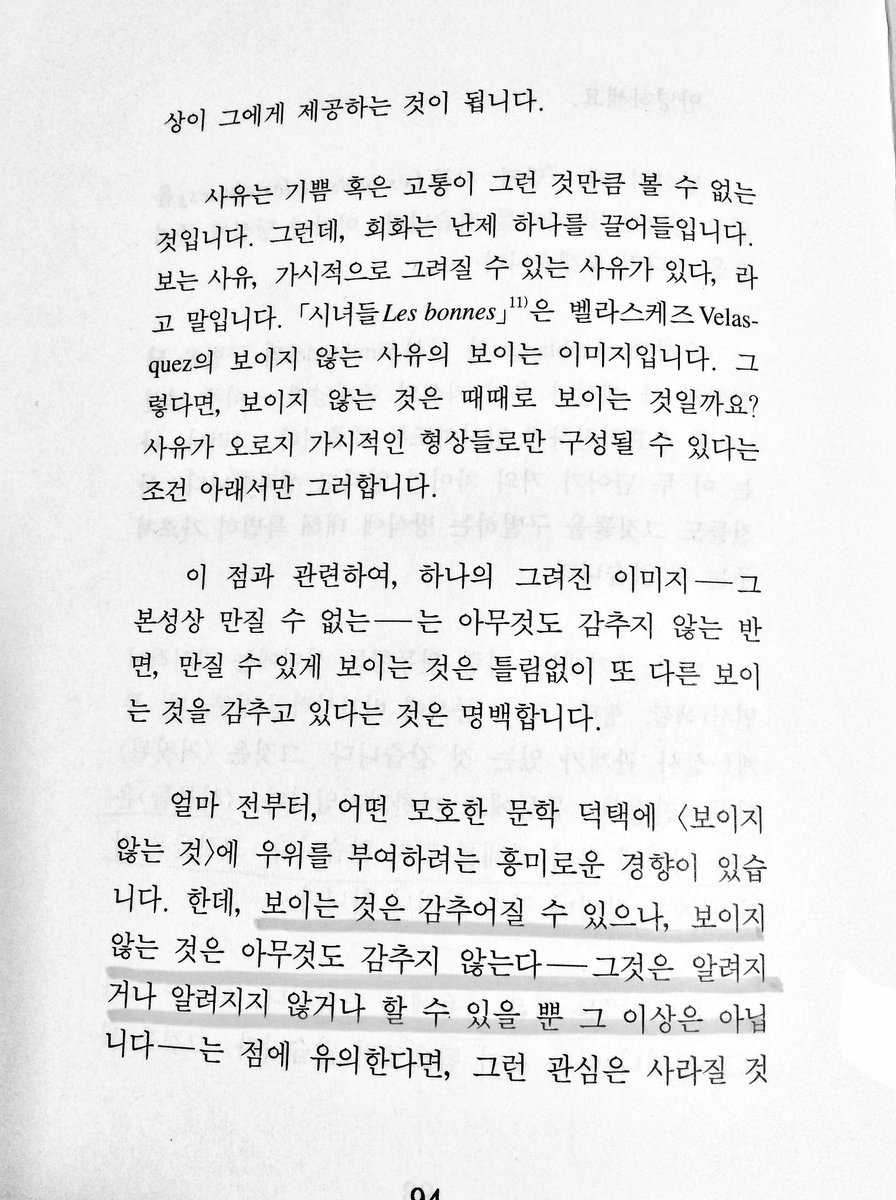 상이 그에게 제공하는 것이 됩니다.
사유는 기쁨 혹은 고통이 그런 것만큼 볼 수 없는
것입니다. 그런데, 회화는 난제 하나를 끌어들입니다.
보는 사유, 가시적으로 그려질 수 있는 사유가 있다, 라
고 말입니다. 「시녀들Les bonnes」11)은 벨라스케즈Velas-
quez의 보이지 않는 사유의 보이는 이미지입니다. 그
렇다면, 보이지 않는 것은 때때로 보이는 것일까요?
사유가 오로지 가시적인 형상들로만 구성될 수 있다는
조건 아래서만 그러합니다.
이 점과 관련하여, 하나의 그려진 이미지──그
본성상 만질 수 없는──는 아무것도 감추지 않는 반
면, 만질 수 있게 보이는 것은 틀림없이 또 다른 보이
는 것을 감추고 있다는 것은 명백합니다.
얼마 전부터, 어떤 모호한 문학 덕택에 〈보이지
않는 것〉에 우위를 부여하려는 흥미로운 경향이 있습
니다. 한데, 보이는 것은 감추어질 수 있으나, 보이지
않는 것은 아무것도 감추지 않는다──그것은 알려지
거나 알려지지 않거나 할 수 있을 뿐 그 이상은 아닙
니다──는 점에 유의한다면, 그런 관심은 사라질 것
94